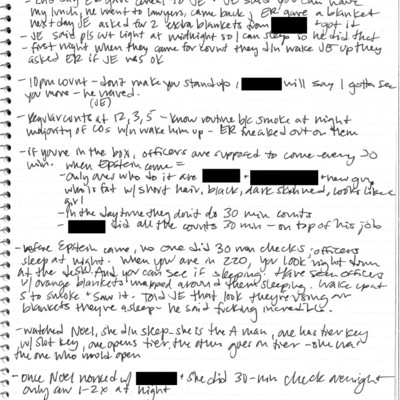 my lunch, he went to lawyers, came back, ER gave a blanket
next day JE asked for 2 extra blankets from + got it
- JE said pls cut light at midnight so I can sleep so he did that
- first night when they came for count they didn wake JE up they
asked ER if JE was ok
- 10pm count - don't make you stand up, will say I gotta see
you move - he waved.
(JE)
- Regular counts at 12, 3, 5 - know routine b/c smoke at night
majority of COs w/n wake him up - ER freaked out on them
- if you're in the box, officers are supposed to come every 30
min. when Epstein came =
- Only ones who do it are + + new guy
who is fat w/ short hair, black, dark skinned, looks like a
girl
- in the daytime they don't do 30 min counts
- did all the counts 30 min - on top of his job
- before Epstein came, no one did 30 min checks; officers
sleep at night. When you are in 220, you look right down
at the desk. And you can see if sleeping. Have seen officers
w/ orange blankets wrapped around them sleeping. Wake up at
5 to smoke + saw it. Told JE that look they're using our
blankets they're asleep - he said fucking incredible.
- watched Noel, she din sleep - she is the A man, one has tier key
w/ slot key, one opens tier, the other goes on tier - she was
the one who would open
- once Noel worked w/ + she did 30-min check overnight
only saw 1-2x at night